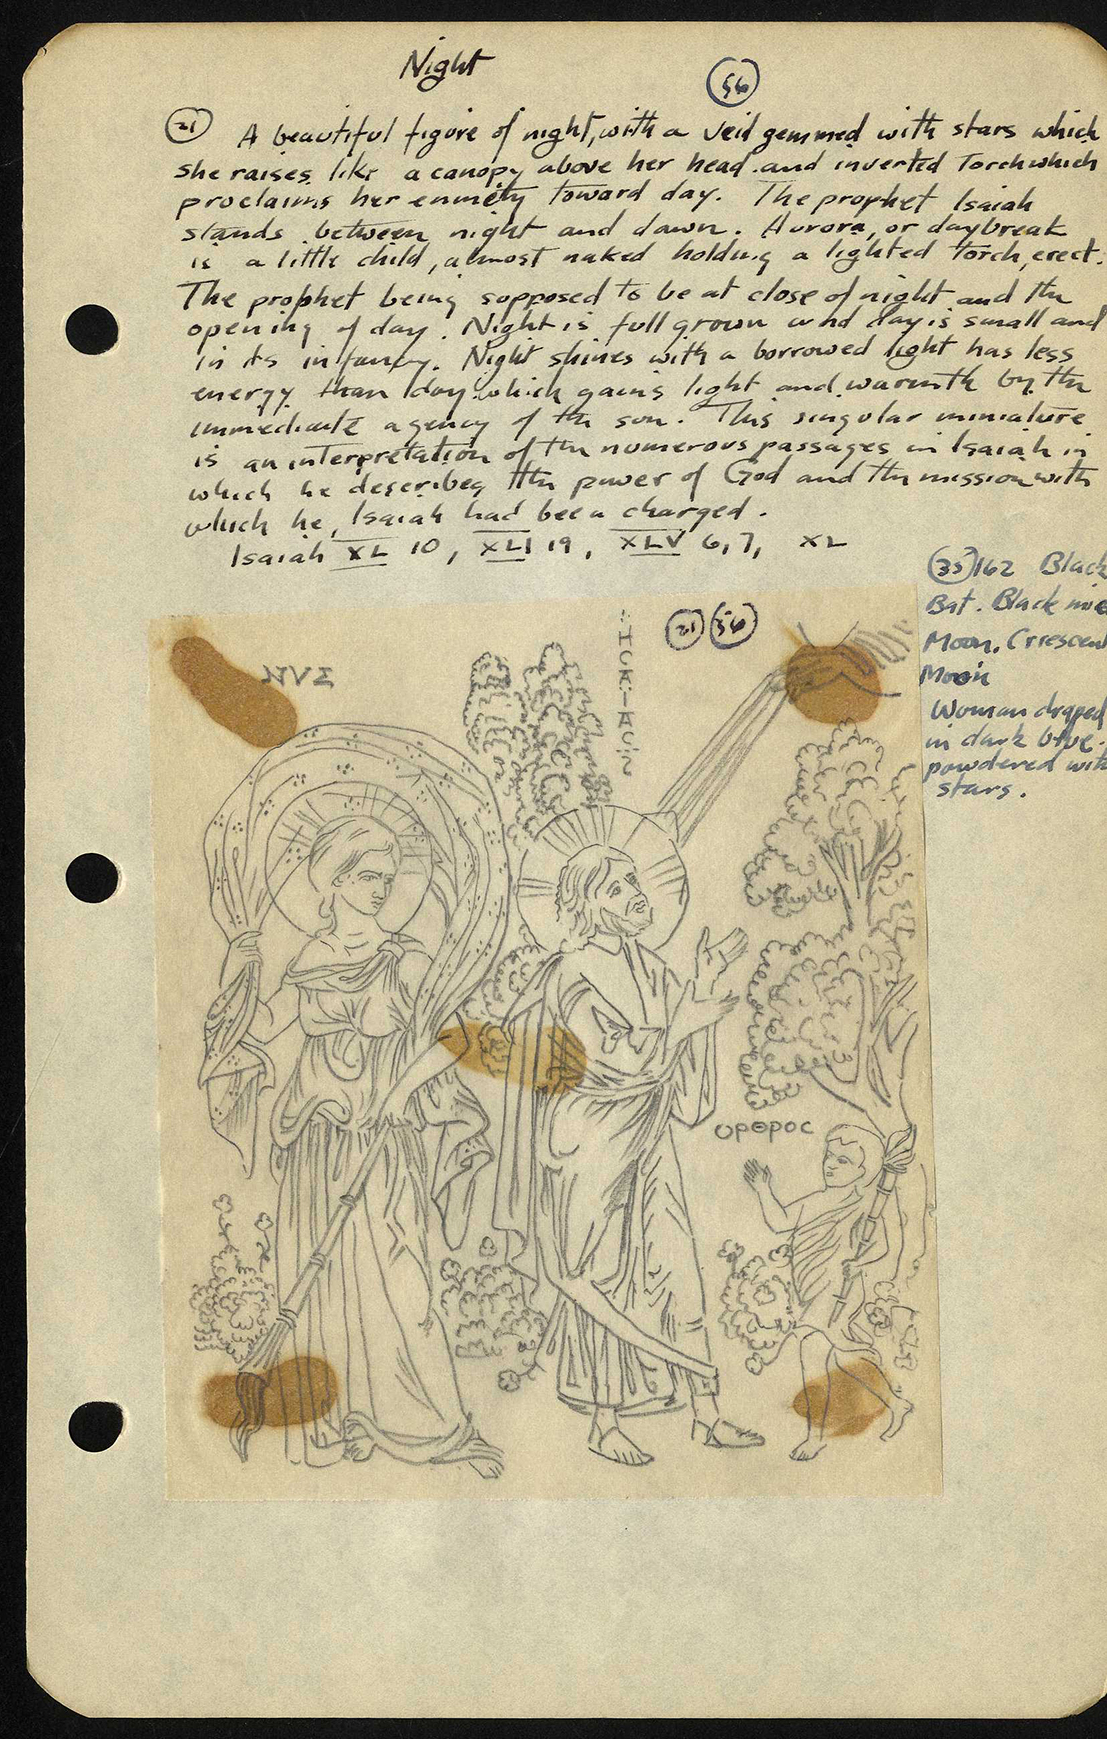 Night
56
21 A beautiful figure of night, with a veil gemmed with stars which
she raises like a canopy above her head and inverted Torch which
proclaims her enmety toward day. The prophet Isaiah
stands between night and dawn. Aurora, or daybreak
is a little child, almost naked holding a lighted Torch, erect.
The prophet being supposed to be at close of night and the
opening of day. Night is full grown and day is small and
in its infancy. Night shines with a borrowed light has less
energy than day which gains light and warmth by the
immediate agency of the son. This singular miniature
is an interpretation of the numerous passages in Isaiah in
which he describes the power of God and the mission with
which he, Isaiah had been charged.
Isaiah XL 10, XLI 19, XLV 6, 7, XL
35 162 Black
Bat. Black
Moon. Crrescent
Moon
Woman draped
in dark blue.
powdered with
stars.
21 56
ΝΥΞ
ΟΡΘΡΟC